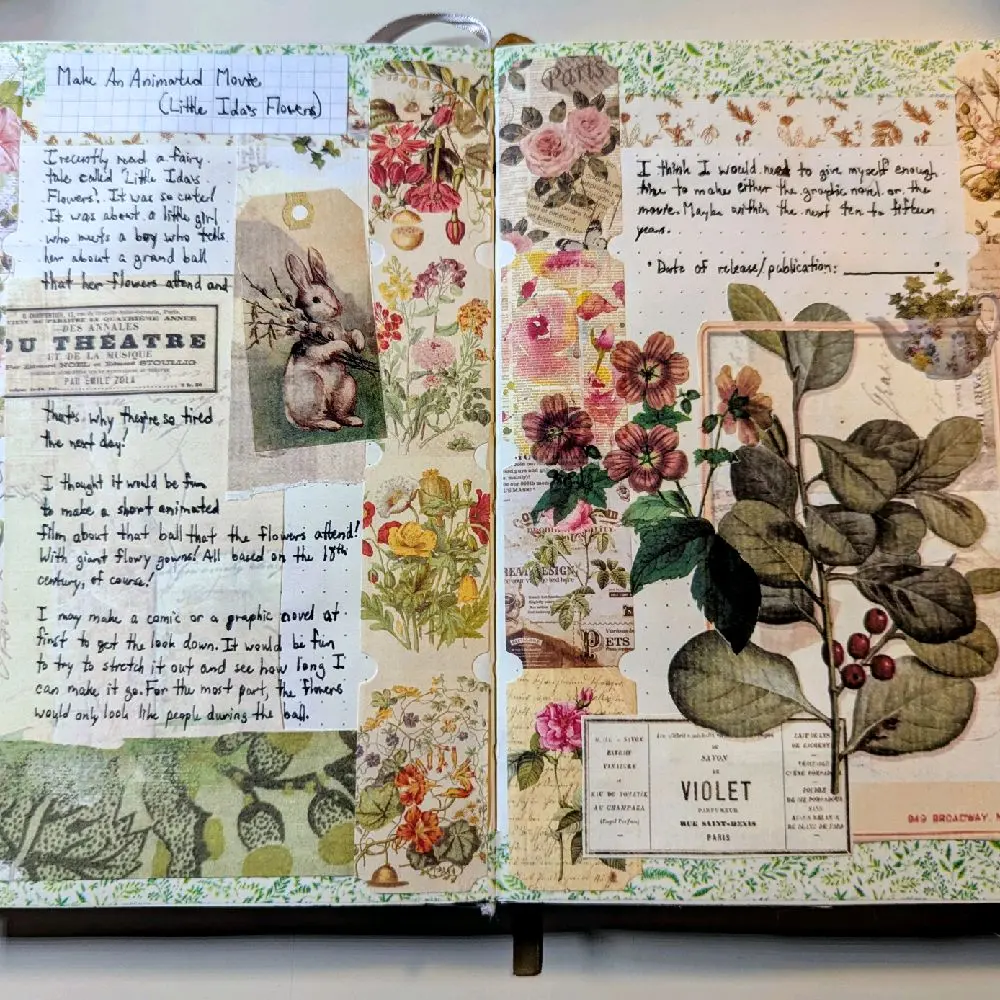 Make An Animated Movie
(Little Ida's Flowers)
I recently read a fairy
tale called 'Little Ida's
Flowers'. It was so cute!
It was about a little girl
who meets a boy who tells
her about a grand ball
that her flowers attend and
DES ANNALES
DU THEATRE
ET DE LA MUSIQUE
Par EDOUARD NOEL et EDMOND STOULLIG
PAR ÉMILE ZOLA
that's why they're so tired
the next day!
I thought it would be fun
to make a short animated
film about that ball that the flowers attend!
With giant flowy gowns! All based on the 18th
century, of course!
I may make a comic or a graphic novel at
first to get the look down. It would be fun
to try to stretch it out and see how long I
can make it go. For the most part, the flowers
would only look like people during the ball.
Paris
I think I would need to give myself enough
time to make either the graphic novel or the
movie. Maybe within the next ten to fifteen
years.
Date of release/publication:
DESIGN
PETS
SAVON
DE
VIOLET
PARFUMEUR
RUE SAINT-DENIS
PARIS
AU CHAMPAKA
949 BROADWAY, N